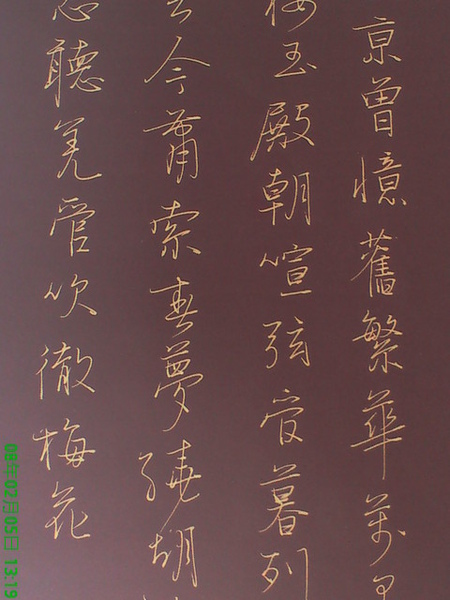 京曾憶舊繁華萬
玉殿朝喧弦管暮列
今蕭索春夢繞胡
聽羌管吹徹梅花
06年02月05日 13:19